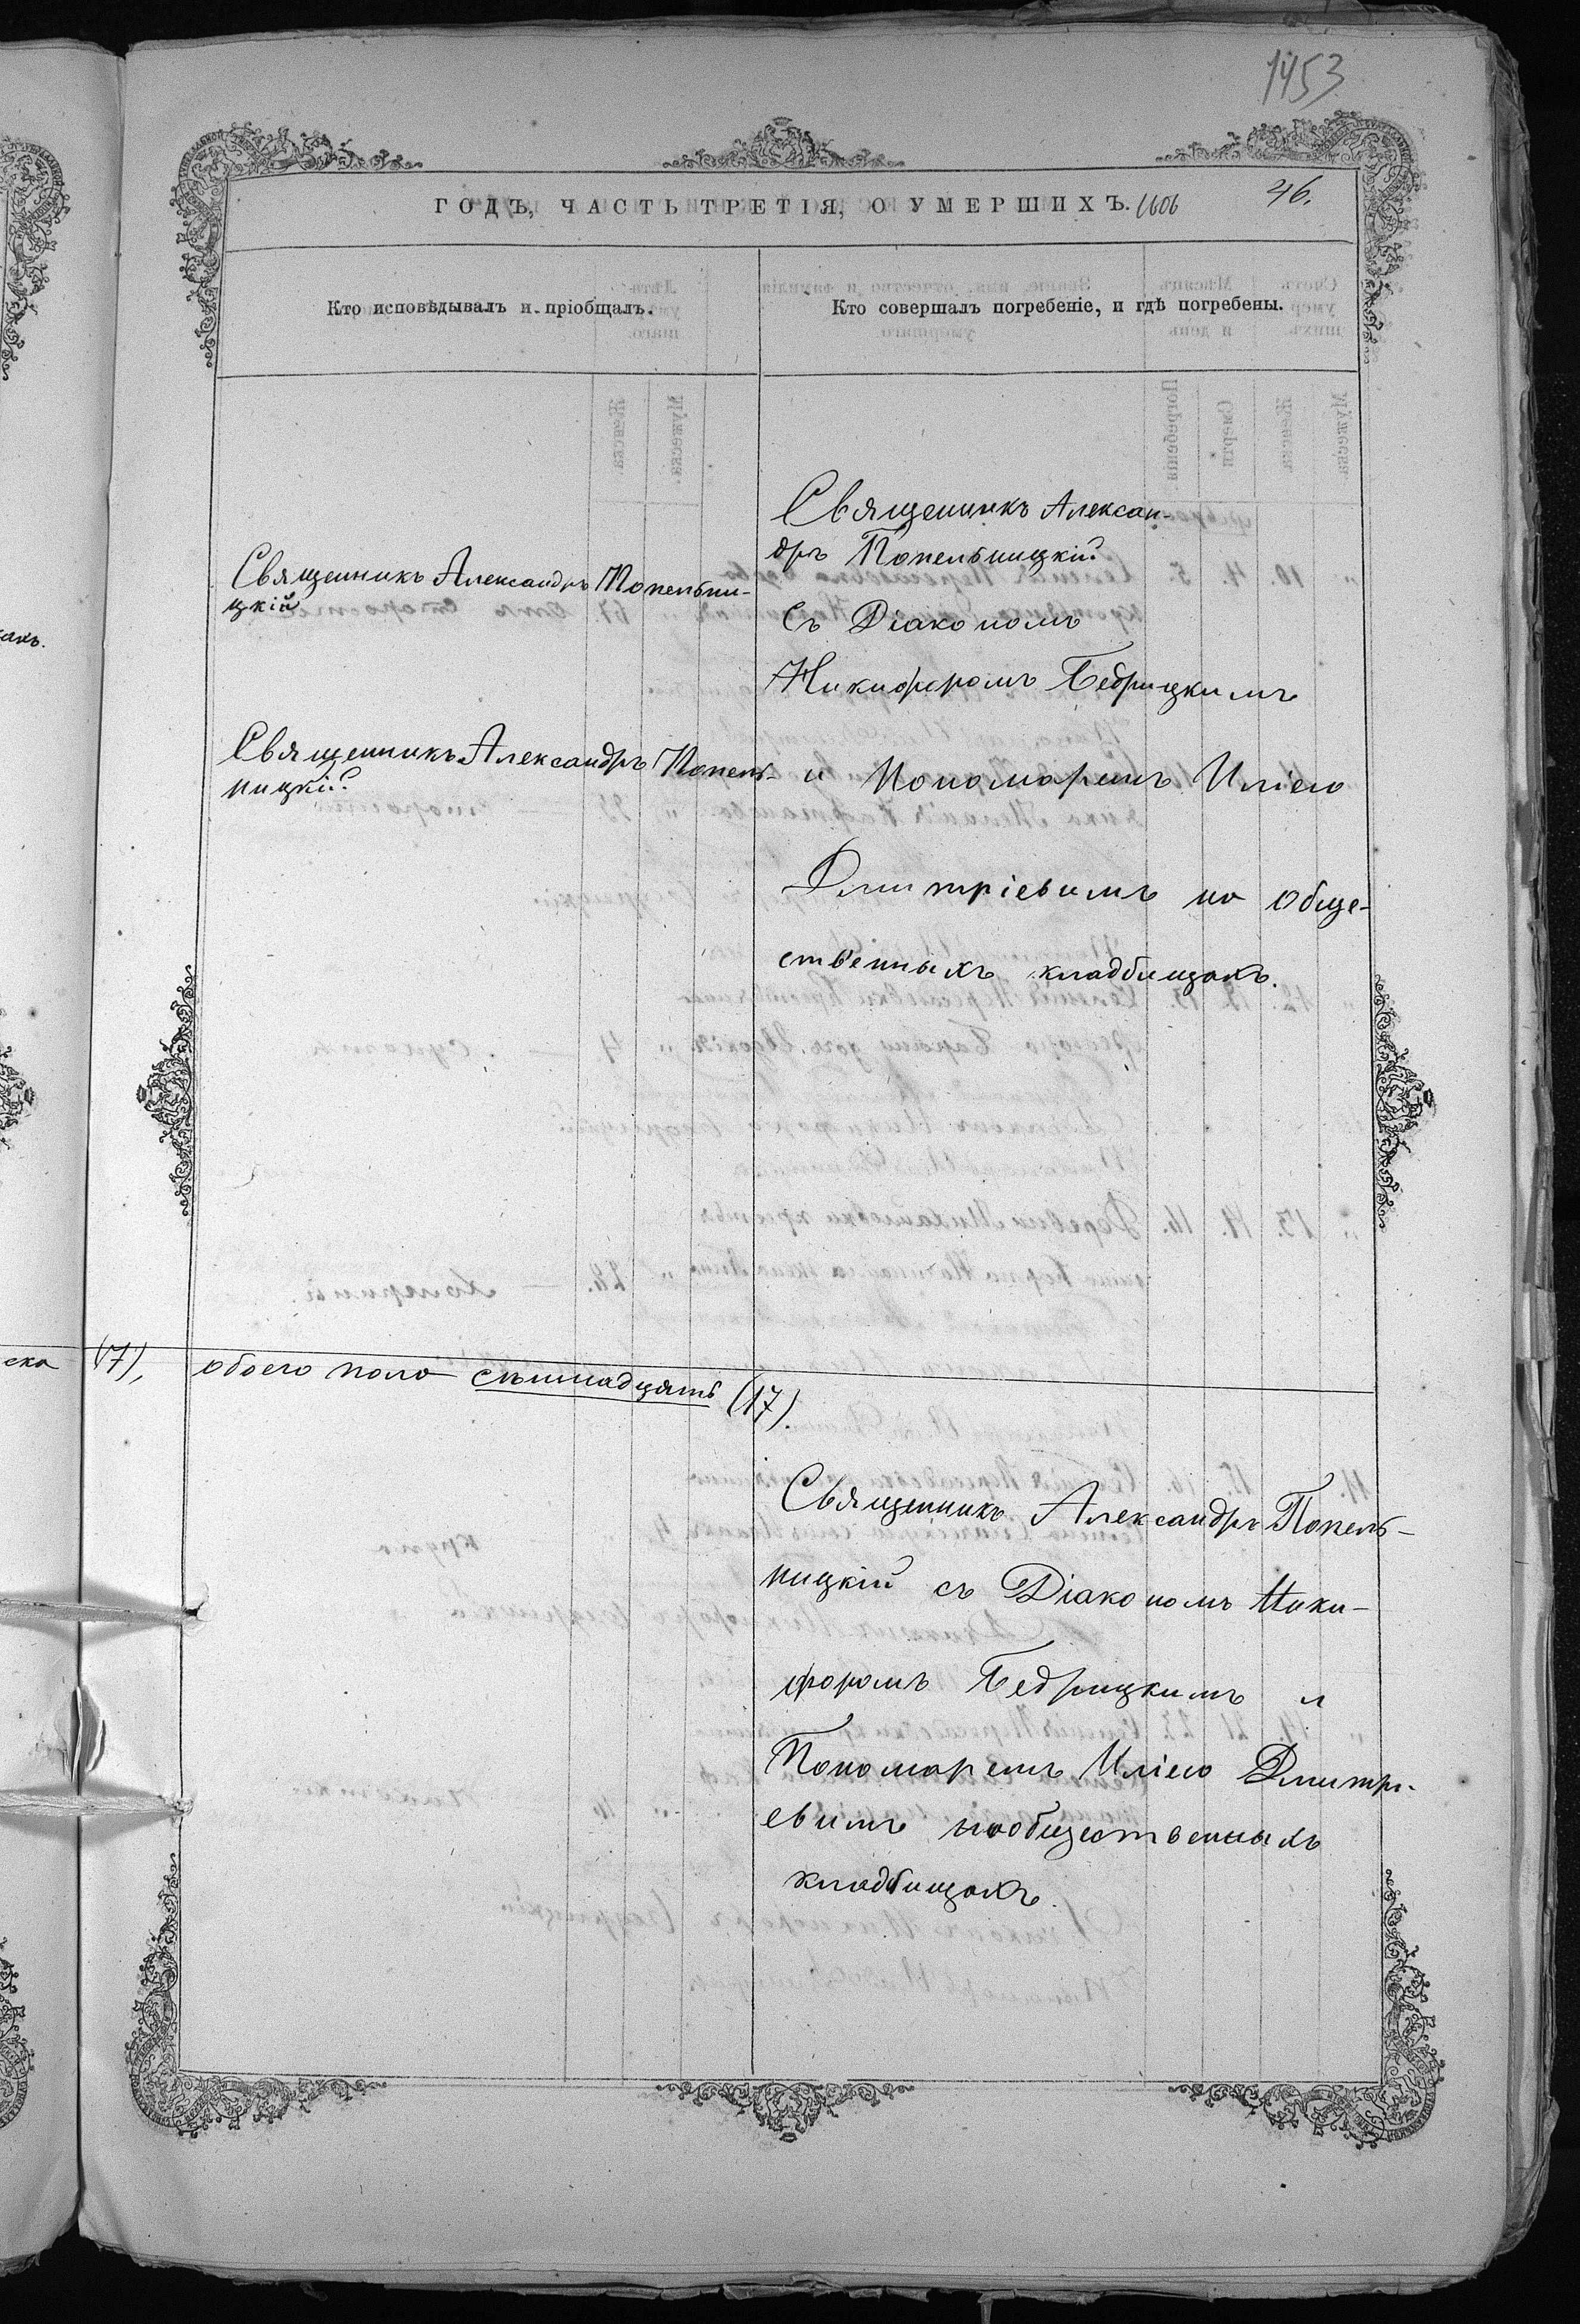 1453
ГОДЪ, ЧАСТЬ ТРЕТІЯ, О УМЕРШИХЪ. 1606
46.
Кто исповѣдывалъ и пріобщалъ.
Кто совершалъ погребеніе, и гдѣ погребены.
Священникъ Александръ Попельни-
цкій
Священникъ Александръ Попель-
ницкій
Священникъ Алексан-
дръ Попельницкій
Съ Діакономъ
Никифоромъ Бедрицкимъ
и Пономаремъ Иліею
Дмитріевымъ на обще-
ственныхъ кладбищахъ.
ска (7), обоего пола сѣмнадцать (17).
Священникъ Александръ Попель-
ницкій съ Діакономъ Ники-
форомъ Бедрицкимъ и
Пономаремъ Иліею Дмитрі-
евымъ на общественныхъ
кладбищахъ.